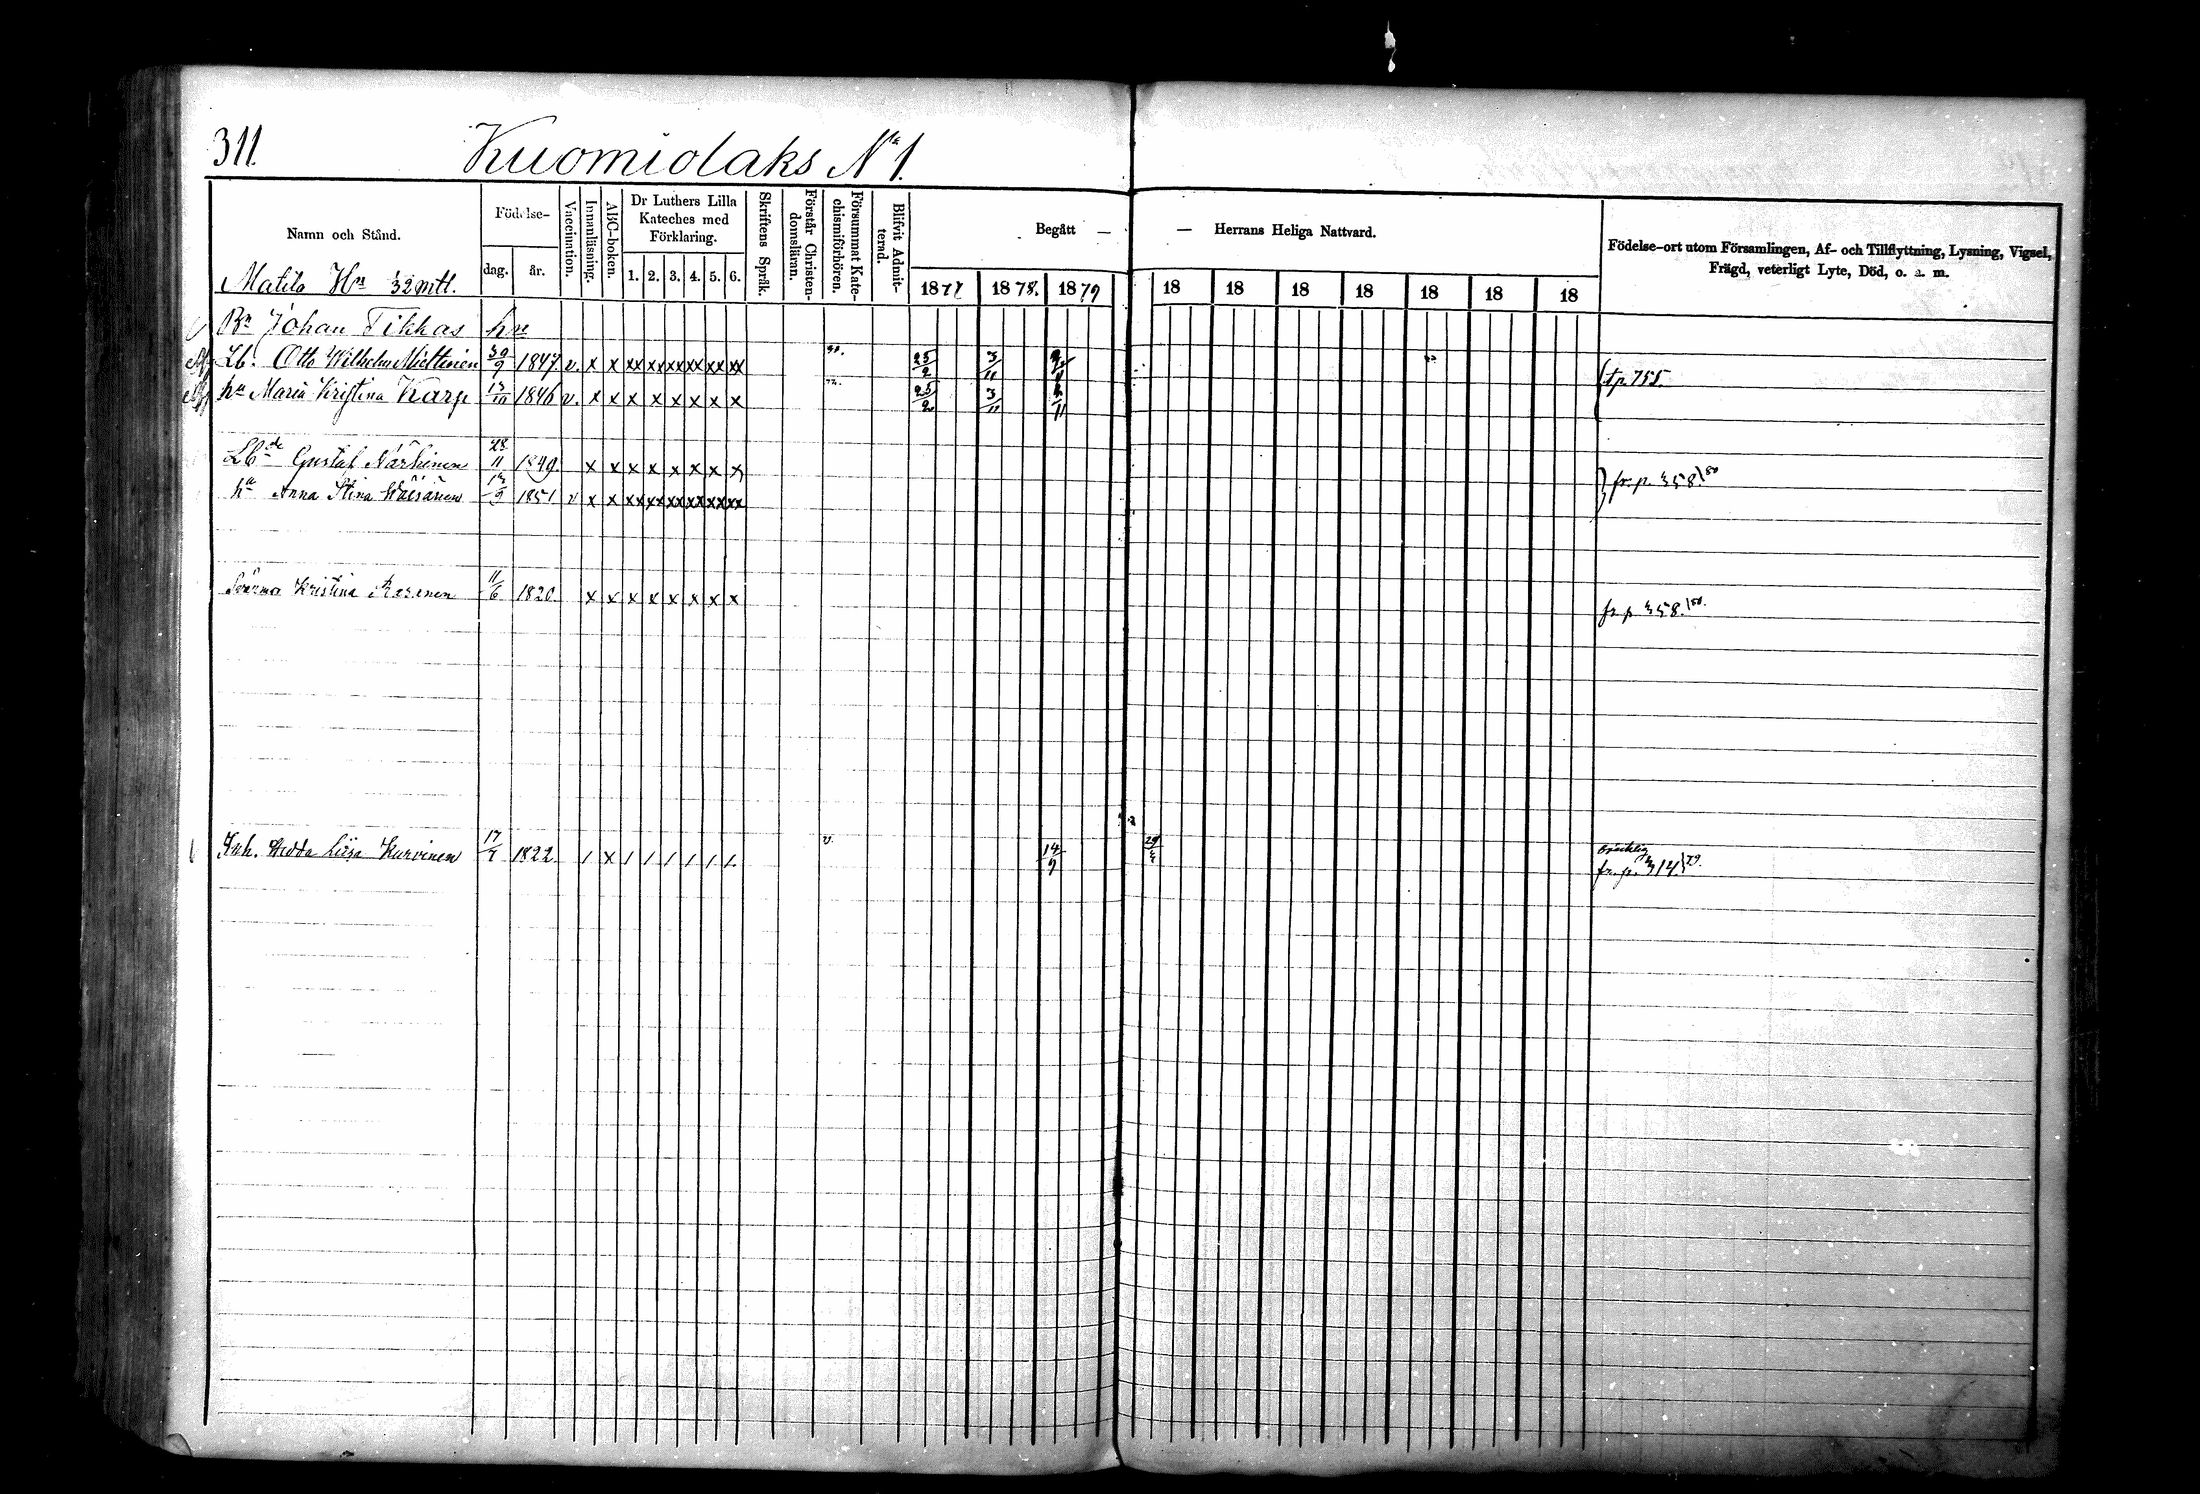 311.
Kuomiolaks No 1.
Namn och Stånd.
Födelse-
dag.
år.
Vaccination.
Innanläsning.
ABC-boken.
Dr Luthers Lilla
Kateches med
Förklaring.
1. 2. 3. 4. 5. 6.
Skriftens Språk.
Förstår Christen-
domsläran.
Försummat Kate-
chismiförhören.
Blifvit Admit-
terad.
Begått —
— Herrans Heliga Nattvard.
1877 1878. 1879 18 18 18 18 18 18 18
Födelse-ort utom Församlingen, Af- och Tillflyttning, Lysning, Vigsel,
Frägd, veterligt Lyte, Död, o. s. m.
Matila Hn mtl.
Bn Johan Tikkas hn
Lb. Otto Wilhelm Miettinen 30/9 1847 v. x x xx xx xx xx xx xx 25/2 3/11
hu Maria Kristina Karp 13/10 1846 v. x x x x x x x x 25/2 3/11 2/11
tp 755.
Lbde Gustaf Närhinen 28/11 1849 x x x x x x x x
hu Anna Stina Väisänen 1851 v x x xx xx xx xx xx xx
fr. p. 358.
Kristina 11/6 1820. x x x x x x x x
fr. p. 358.
Inh. Hedda Liisa Kurvinen 1822 / x / / / / / / 14/9
fr. p. 314